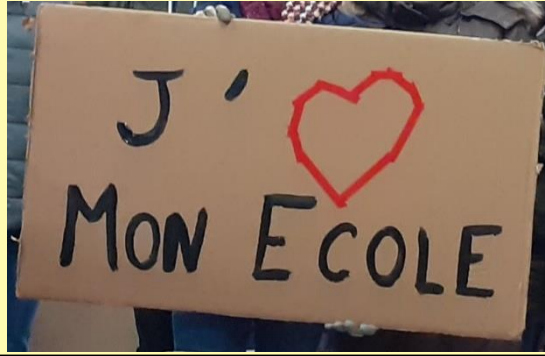 J' ❤
MON ECOLE